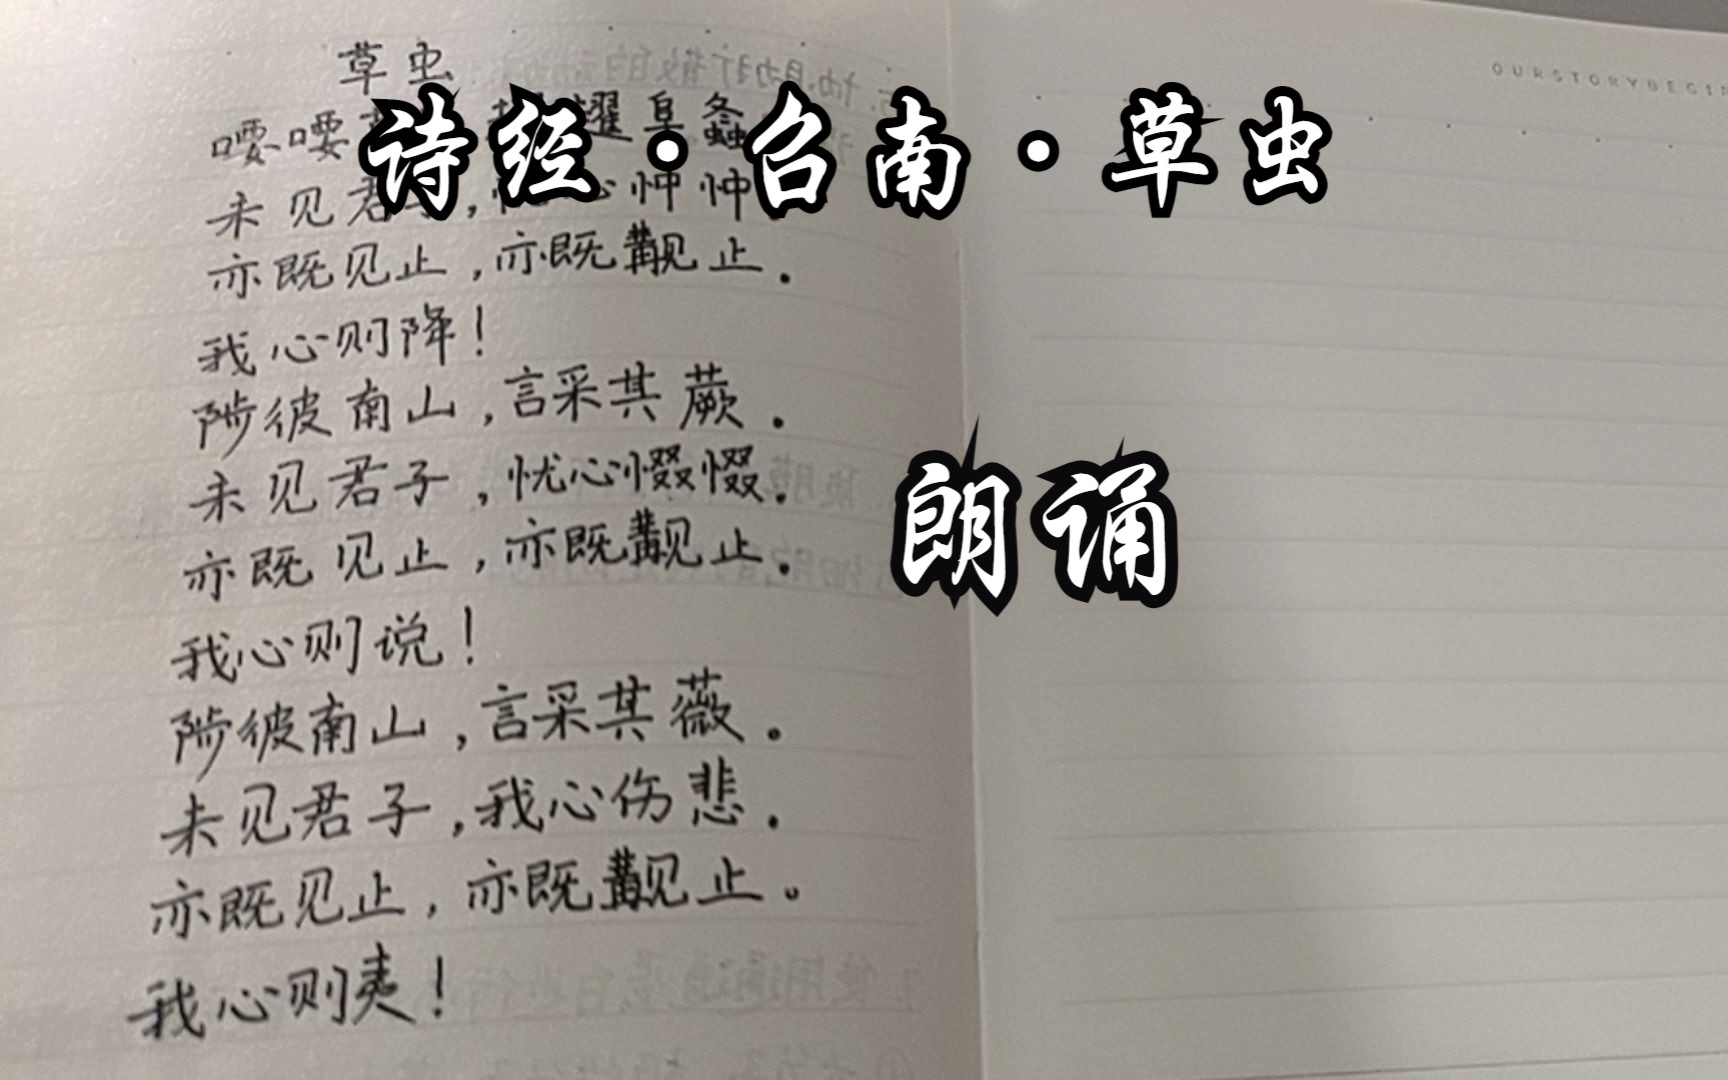 草虫
诗经·召南·草虫
喓喓 趯阜螽
未见君子,忧心忡忡
亦既见止,亦既觏止.
我心则降!
陟彼南山,言采其蕨.
未见君子,忧心惙惙.
亦既见止,亦既觏止.
我心则说!
陟彼南山,言采其薇。
未见君子,我心伤悲.
亦既见止,亦既觏止。
我心则夷!
朗诵
OURSTORYBEGIN